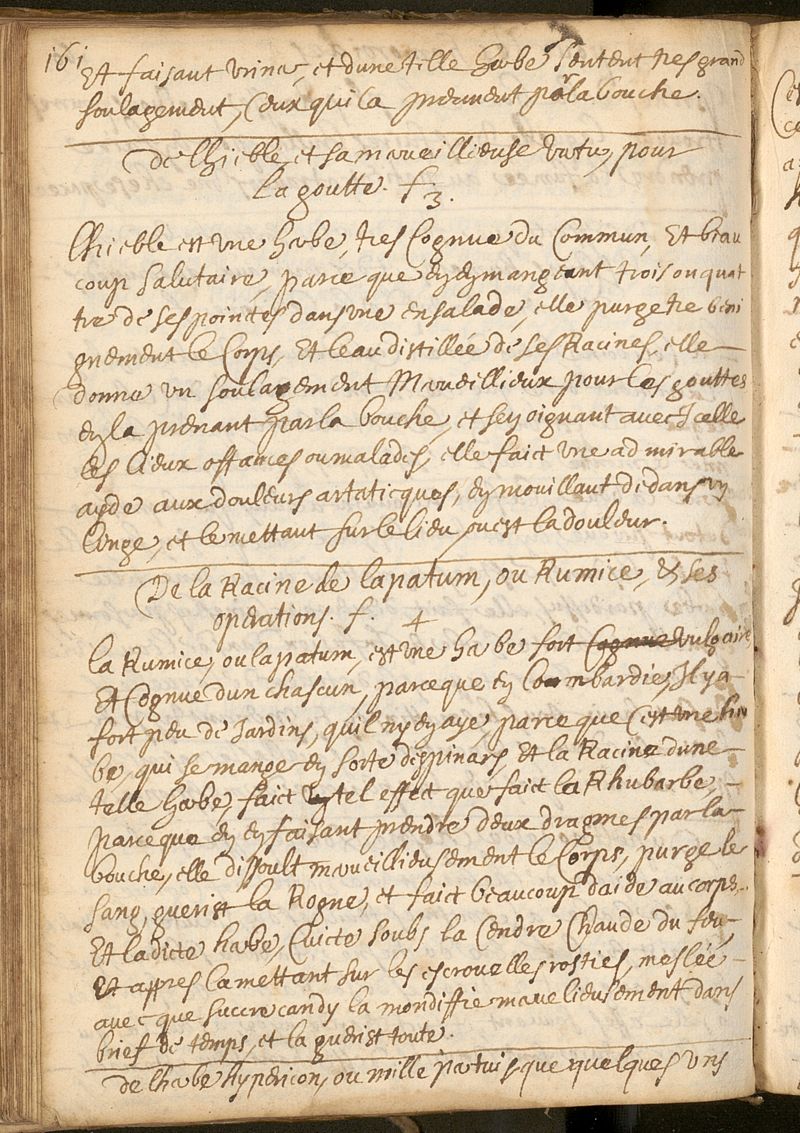 161
Et faisant Urine, et dune telle herbe sentent tres grand
soulagement, Ceux qui la prennent par la bouche.
de lhieble, et sa merveillieuse vertu, pour
la goutte. f. 3.
Lhieble est Une herbe, tres Cognue du Commun, Et beau
coup salutaire, parce que en en mangeant trois ou quat
tre de ses pointes dans Une ensalade, elle purge tre beni
gnement le Corps, Et leau distillée de ses Racines, elle
donne un soulagement Merveillieux pour les gouttes
en la prenant par la bouche, et sen oignant avec Icelle
les lieux offances ou malades, elle faict Une admirable
ayde aux douleurs artaticques, en mouillant dedans un
linge, et le mettant sur le lieu ou est la douleur.
De la Racine de lapatum, ou Rumice, & ses
operations. f. 4
la Rumice, ou lapatum, est Une herbe fort Cognue vulgaire
Et Cognue dun chascun, parceque en Lombardie, Il y a
fort peu de Jardins, quil ny en aye, parce que Cest Une her
be, qui se mange en sorte despinars, Et la Racine dune
telle herbe, faict un tel effect que faict la Rhubarbe,
parceque en en faisant prendre deux dragmes par la
bouche, elle dissoult merveillieusement le Corps, purge le
sang, guerist la Rogne, et faict beaucoup daide au corps,
Et ladicte herbe, Cuicte soubs la Cendre Chaude du feu,
Et appres la mettant sur les escrouelles rosties, meslée
avecque succre candy la mondiffie mervelieusement dans
brief de temps, et la guerist toute.
de lherbe hypericon, ou mille partuis que quelques uns